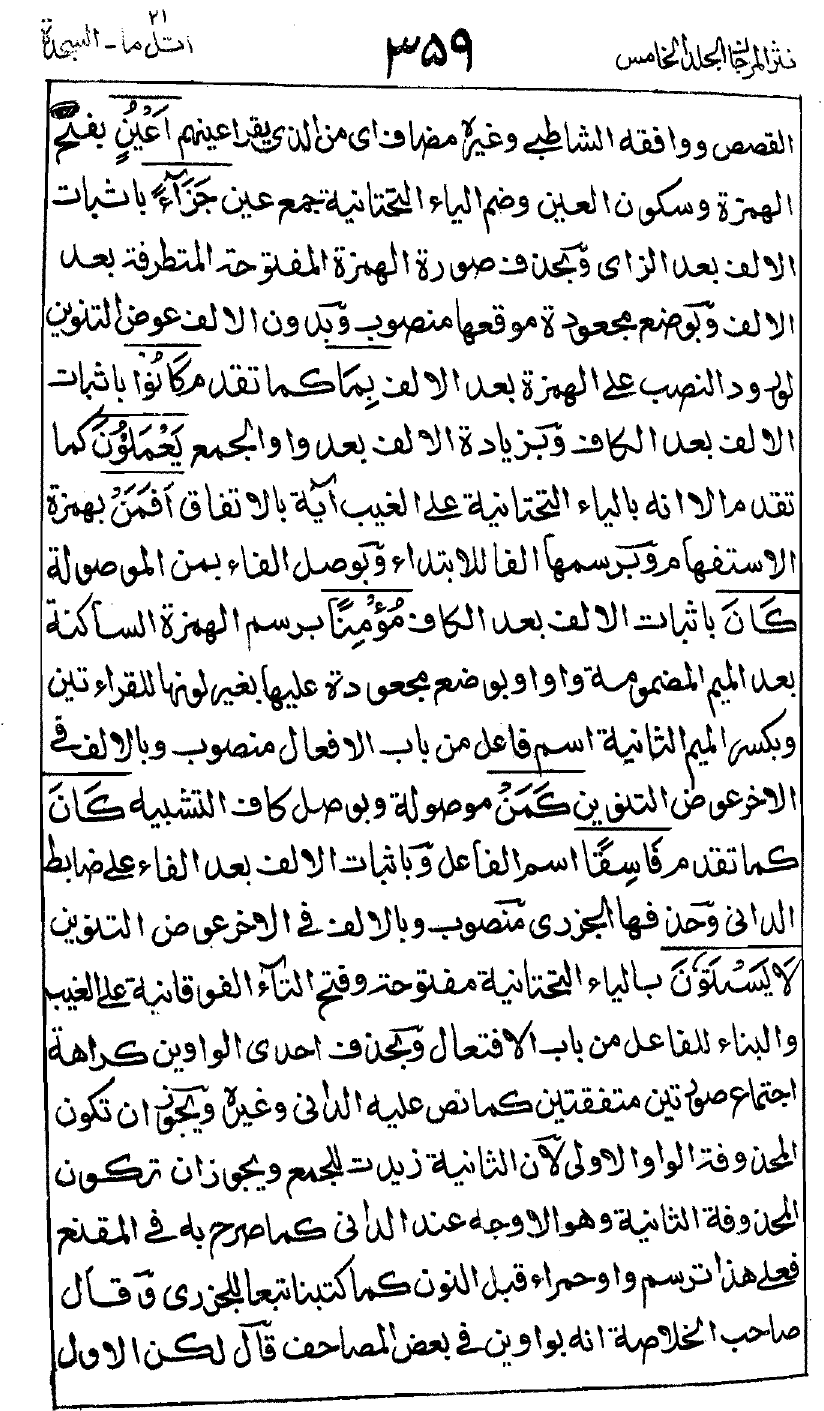 نثر المرجان الجلد الخامس
٣٥٩
٢١
اتل ما - السجدة
القصص ووافقه الشاطبي وغيره مضاف اى من الذى يقر اعينهم اَعْيُنٍ بفتح
الهمزة وسكون العين وضم الياء التحتانية جمع عين جَزَآءً باثبات
الالف بعد الزاى وبحذف صورة الهمزة المفتوحة المتطرفة بعد
الالف وبوضع مجعودة موقعها منصوب وبدون الالف عوض التنوين
لورود النصب على الهمزة بعد الالف بِمَا كما تقدم كَانُوْا باثبات
الالف بعد الكاف وبزيادة الالف بعد واو الجمع يَعْمَلُوْنَ كما
تقدم الا انه بالياء التحتانية على الغيب آية بالاتفاق اَفَمَنْ بهمزة
الاستفهام وبرسمها الفا للابتداء وبوصل الفاء بمن الموصولة
كَانَ باثبات الالف بعد الكاف مُؤْمِنًا برسم الهمزة الساكنة
بعد الميم المضمومة واوا وبوضع مجعودة عليها بغير لونها للقراءتين
وبكسر الميم الثانية اسم فاعل من باب الافعال منصوب وبالالف فى
الاخر عوض التنوين كَمَنْ موصولة وبوصل كاف التشبيه كَانَ
كما تقدم فَاسِقًا اسم الفاعل وباثبات الالف بعد الفاء على ضابط
الدانى وحذفها الجزرى منصوب وبالالف فى الاخر عوض التنوين
لَا يَسْتَوٗنَ بالياء التحتانية مفتوحة وفتح التاء الفوقانية على الغيب
والبناء للفاعل من باب الافتعال وبحذف احدى الواوين كراهة
اجتماع صورتين متفقتين كما نص عليه الدانى وغيره ويجوز ان تكون
المحذوفة الواو الاولى لان الثانية زيدت للجمع ويجوز ان تركون
المحذوفة الثانية وهو الاوجه عند الدانى كما صرح به فى المقنع
فعلى هذا ترسم واو حمراء قبل النون كما كتبنا تبعا للجزرى وقال
صاحب الخلاصة انه بواوين فى بعض المصاحف قال لكن الاول